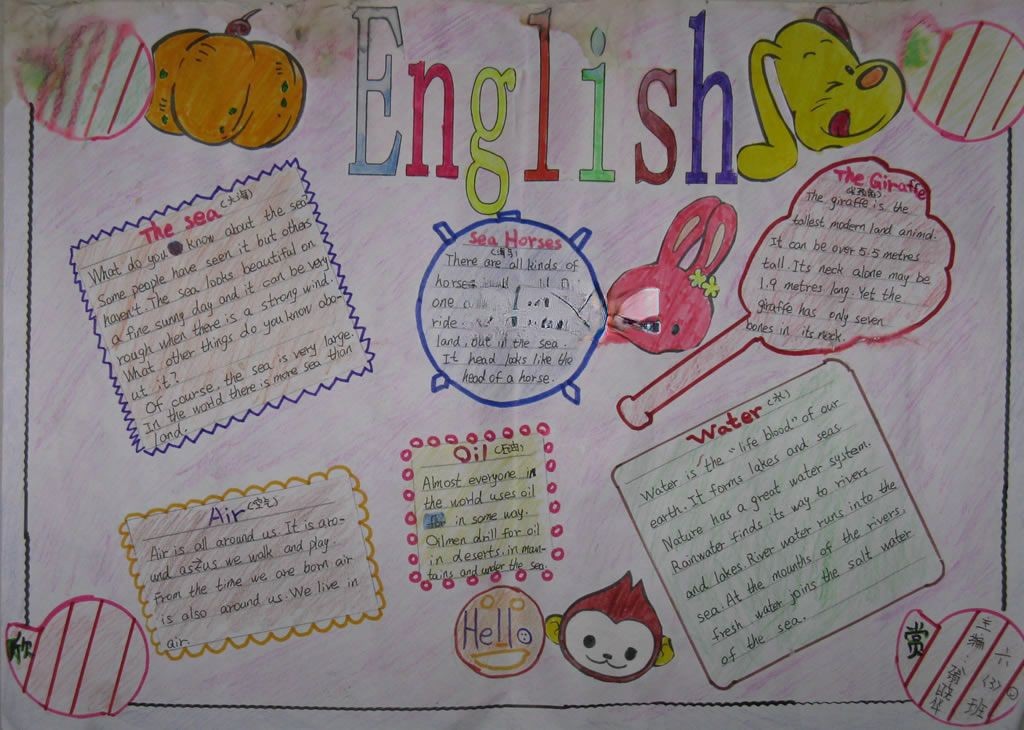 English
The sea (大海)
What do you know about the sea
Some people have seen it but others
haven't. The sea looks beautiful on
a fine sunny day and it can be very
rough when there is a strong wind.
What other things do you know abo-
ut it?
Of course, the sea is very large.
In the world there is more sea than
land.
Sea Horses
(海马)
There are all kinds of
horse
one a
ride.
land, but in the sea.
It head looks like the
head of a horse.
The Giraffe
The giraffe is the
tallest modern land animal.
It can be over 5.5 metres
tall. Its neck alone may be
1.9 metres long. Yet the
giraffe has only seven
bones in its neck.
Air (空气)
Air is all around us. It is aro-
und as us we walk and play.
From the time we are born air
is also around us. We live in
air.
Oil (石油)
Almost everyone in
the world uses oil
in some way.
Oilmen drill for oil
in deserts, in moun-
tains and under the sea.
Water (水)
Water is the "life blood" of our
earth. It forms lakes and seas
Nature has a great water system.
Rainwater finds its way to rivers
and lakes. River water runs into the
sea. At the mounths of the rivers,
fresh water joins the salt water
of the sea.
Hello
欣
赏
六(3)班
主编: